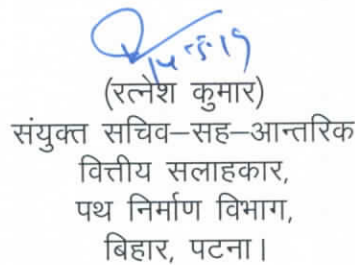 14-5-19
(रत्नेश कुमार)
संयुक्त सचिव–सह–आन्तरिक
वित्तीय सलाहकार,
पथ निर्माण विभाग,
बिहार, पटना।